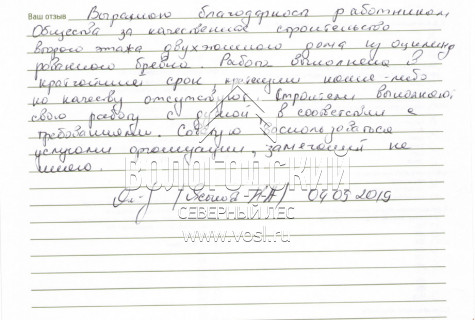 Ваш отзыв Выражаю благодарность работникам
Общества за качественное строительство
второго этажа двухэтажного дома из оцилинд
рованного бревна. Работа выполнена в
кратчайший срок, претензии какие-либо
по качеству отсутствуют. Строители выполнили
свою работу с душой в соответствии с
требованиями. Советую воспользоваться
услугами организации, замечаний не
имею.
ВОЛОГОДСКИЙ
04 09 2019
СЕВЕРНЫЙ ЛЕС
www.vosl.ru